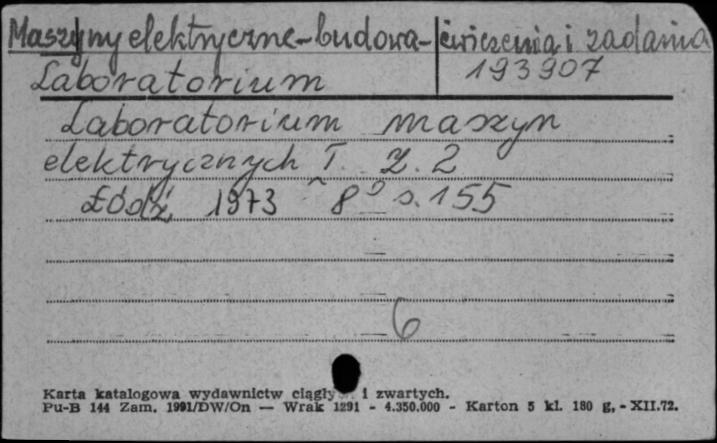 Maszyny elektryczne-budowa-ćwiczenia i zadania
Laboratorium 193907
Laboratorium maszyn
elektrycznych T. Z. 2
Łódź, 1973 8° s. 155
6
Karta katalogowa wydawnictw ciągłych i zwartych.
Pu-B 144 Zam. 1991/DW/On — Wrak 1291 - 4.350.000 - Karton 5 kl. 180 g, - XII.72.